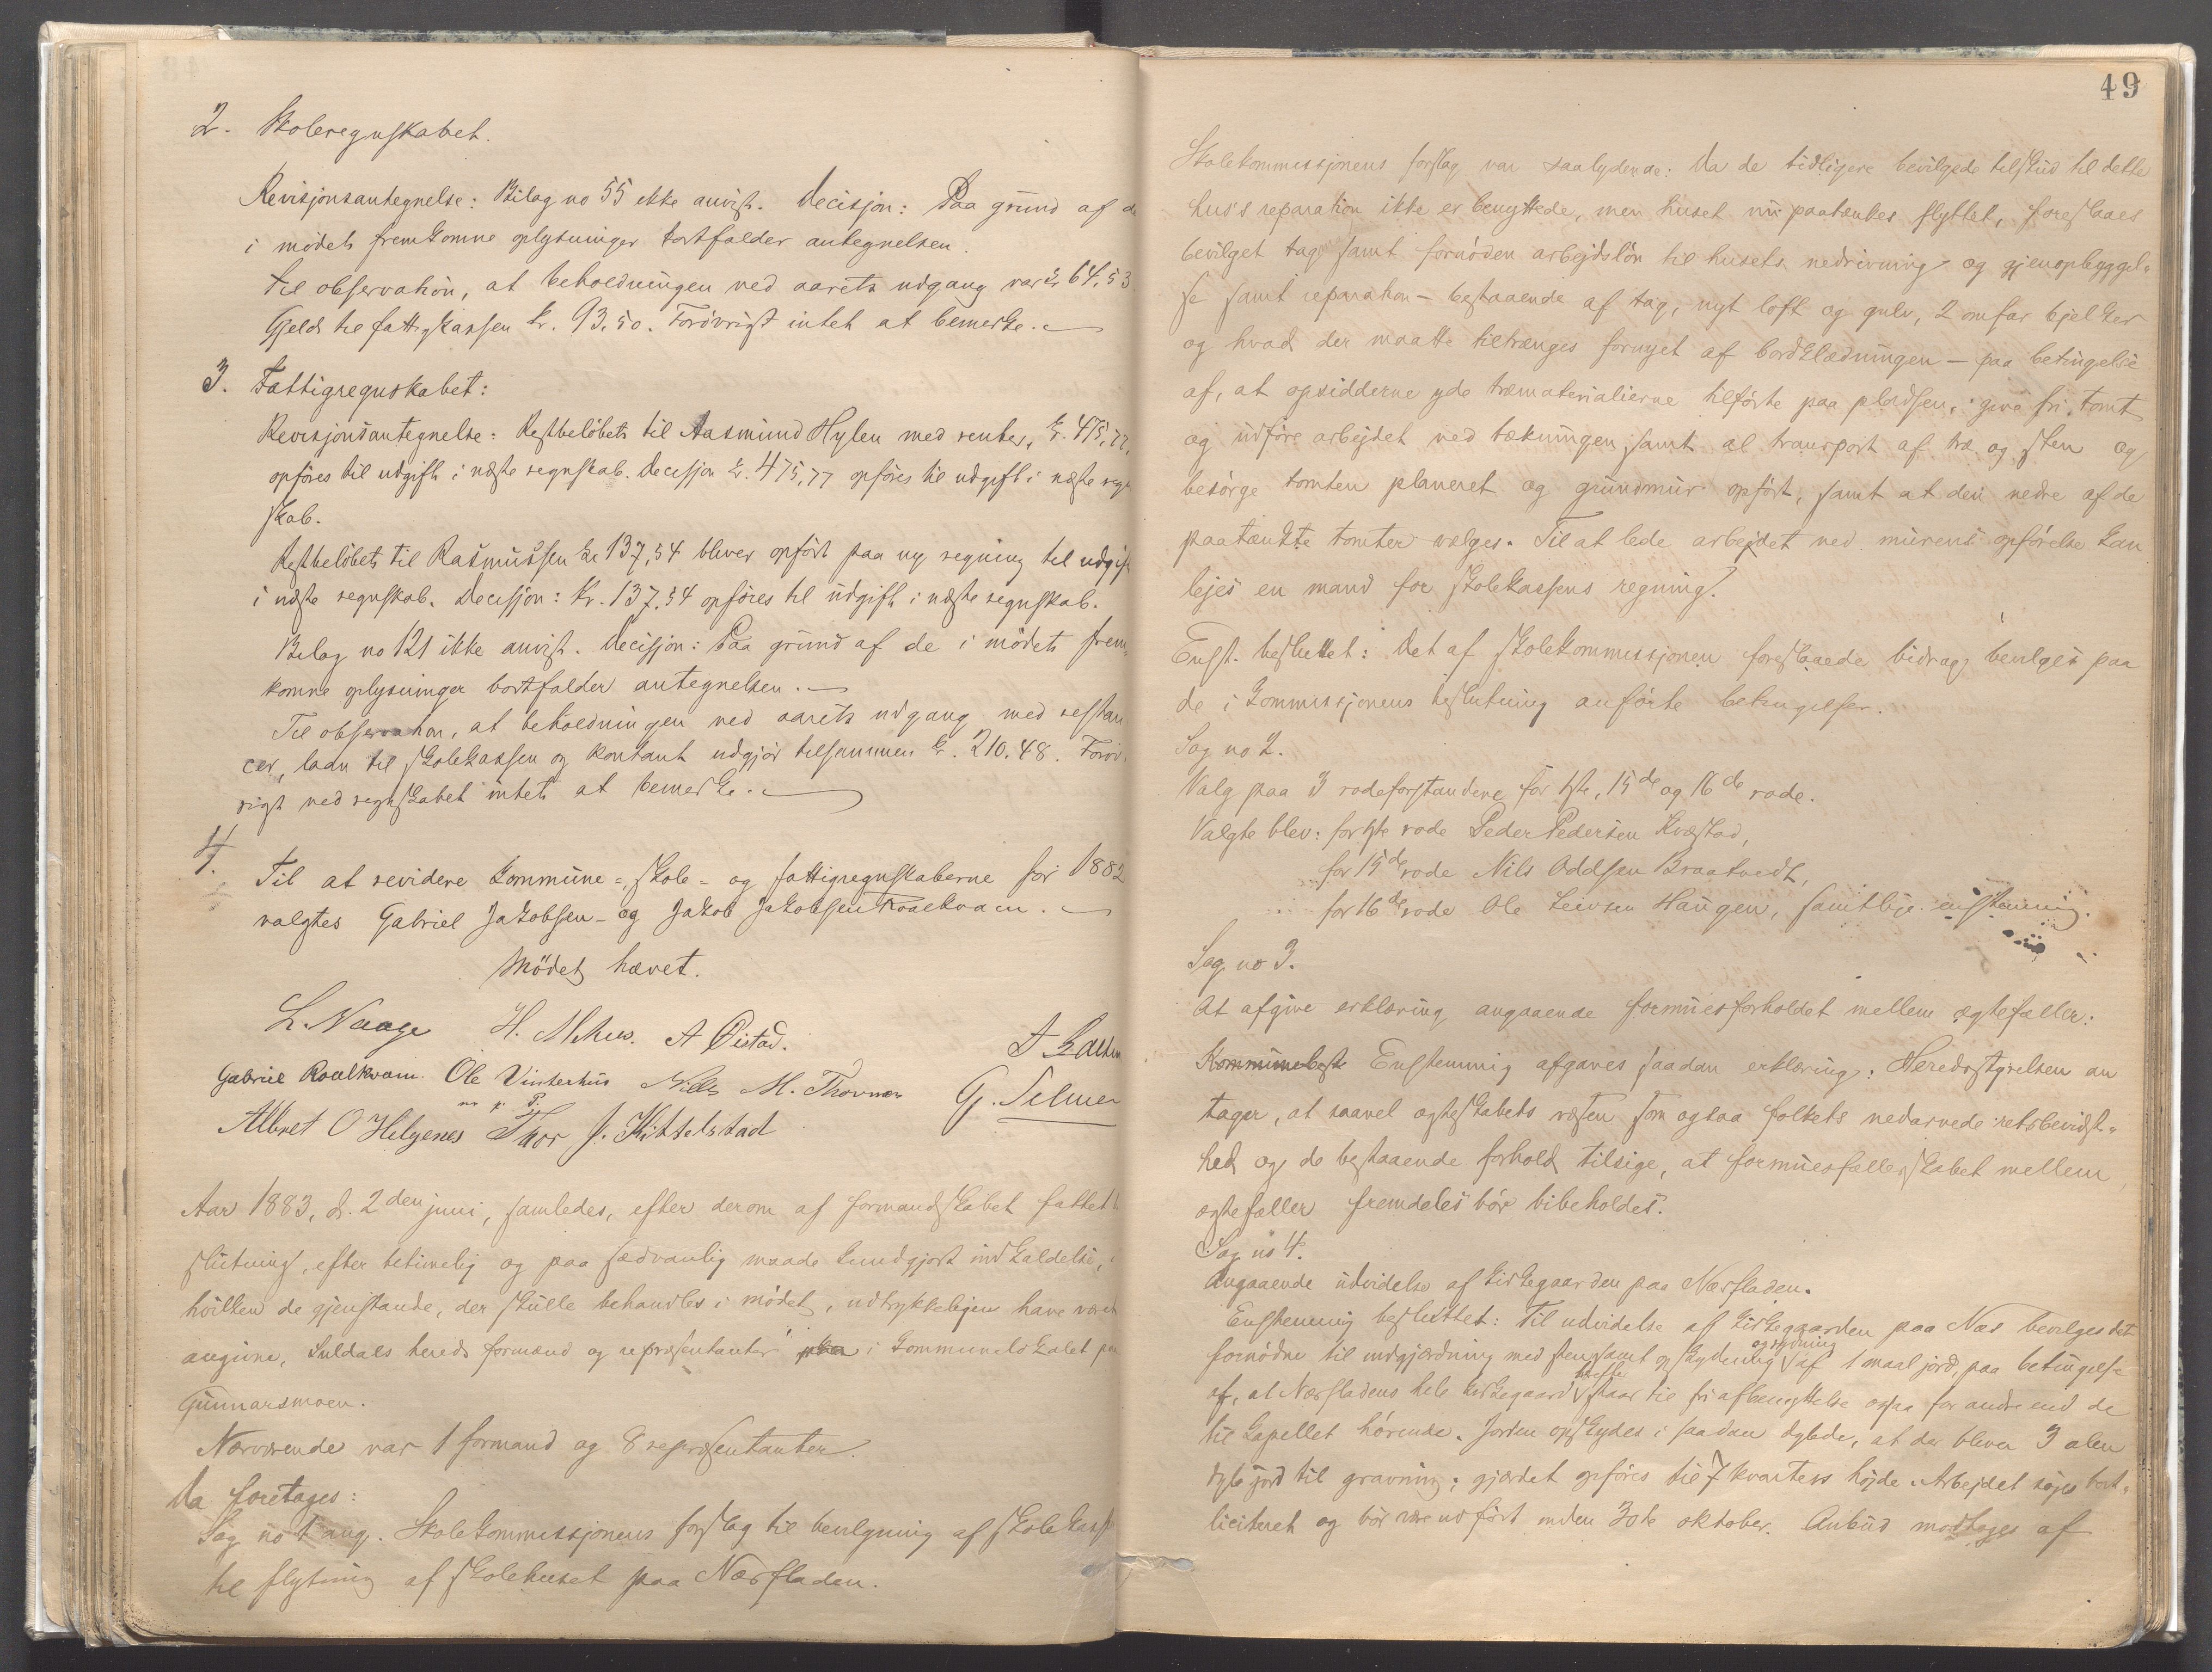 2. Skoleregnskabet.
Revisjonsantegnelse: Bilag no 55 ikke anvist. Decisjon: Paa grund af de
i mødets fremkomne oplysninger bortfalder antegnelsen.
Til observation, at beholdningen ved aarets udgang var kr 64,53
Gjeld til fattigkassen kr. 93,50. Forøvrigt intet at bemerke.
3. Fattigregnskabet:
Revisjonsantegnelse: Restbeløbet til Aasmund Hylen med renter, kr. 475,77,
opføres til udgift i næste regnskab. Decisjon kr. 475,77 opføres til udgift i næste regn
skab.
Restbeløbet til Rasmussen kr 137,54 bliver opført paa ny regning til udgift
i næste regnskab. Decisjon: Kr. 137,54 opføres til udgift i næste regnskab.
Bilag no 121 ikke anvist. Decisjon: Paa grund af de i mødets frem-
komne oplysninger bortfalder antegnelsen.
Til observation, at beholdningen ved aarets udgang med restan
cer, laan til skolekassen og kontant udgjør tilsammen kr. 210.48. Forøv-
rigt ved regnskabet intet at bemerke.
4.
Til at revidere kommune-, skole- og fattigregnskaberne for 1882
valgtes Gabriel Jakobsen- og Jakob Jakobsen Roalkvam.
Mødet hævet.
L. Naage H. Mehus. A Øistad.
Gabriel Roalkvam. Ole Vinterhus Nills M. Thornæs G. Selmer
m. p. P.
Albret O Helgenes Thor J. Kittelstad
Aar 1883, d. 2den juni, samledes, efter derom af formandskabet fattet b
slutning, efter betimelig og paa sædvanlig maade kundgjort indkaldelse,
hvilken de gjenstande, der skulle behandles i mødet, udtrykkeligen have været
angivne, Suldals hereds formænd og repræsentanter i kommunelokalet paa
Gunnarsmoen.
Nærværende var 1 formand og 8 repræsentanter.
Da foretages:
Sag no 1 ang. Skolekommissjonens forslag til bevilgning af skolekass
til flytning af skolehuset paa Næsfladen.
49
Skolekommissjonens forslag var saalydende: Da de tidligere bevilgede tilskud til dette
hus's reparation ikke er benyttede, men huset nu paatænkes flyttet, foreslaaes
bevilget tag samt fornøden arbejdsløn til husets nedrivning og gjenopbyggel-
se samt reparation – bestaaende af tag, nyt loft og gulv, 2 omfar bjelker
og hvad der maatte tiltrænges fornyet af bordklædningen – paa betingelse
af, at opsidderne yde træmaterialierne tilførte paa pladsen, give fri tomt
og udføre arbejdet ved tækningen samt al transport af træ og sten og
besørge tomten planeret og grundmur opført, samt at den nedre af de
paatænkte tomter vælges. Til at lede arbejdet ved murens opførelse kan
lejes en mand for skolekassens regning.
Enst. besluttet: Det af skolekommissjonen foreslaaede bidrag bevilges paa
de i kommissjonens beslutning anførte betingelser.
Sag no 2.
Valg paa 3 rodeforstandere for 1ste, 15de og 16de rode.
Valgte blev: for 1ste rode Peder Pedersen Kvæstad,
for 15de rode Nils Oddsen Braatvedt,
for 16de rode Ole Leivsen Haugen, samtlige enstemmig.
Sag no 3.
At afgive erklæring angaaende formuesforholdet mellem ægtefæller:
Kommunebest Enstemmig afgaves saadan erklæring: Heredsstyrelsen an
tager, at saavel ægteskabets væsen som ogsaa folkets nedarvede retsbevidst-
hed og de bestaaende forhold tilsige, at formuesfællesskabet mellem
ægtefæller fremdeles bør bibeholdes.
Sag no 4.
Angaaende udvidelse af kirkegaarden paa Næsfladen.
Enstemmig besluttet: Til udvidelse af kirkegaarden paa Næs bevilges det
fornødne til indgjærdning med sten samt opskydning og rydning af 1 maal jord, paa betingelse
af, at Næsfladens hele kirkegaard staar til fri afbenyttelse ogsaa for andre end de
til kapellet hørende. Jorden opskydes i saadan dybde, at der bliver 3 alen
dyb jord til gravning; gjærdet opføres til 7 kvarters højde. Arbejdet søges bort-
liciteret og bør være udført inden 30te oktober. Anbud modtages af